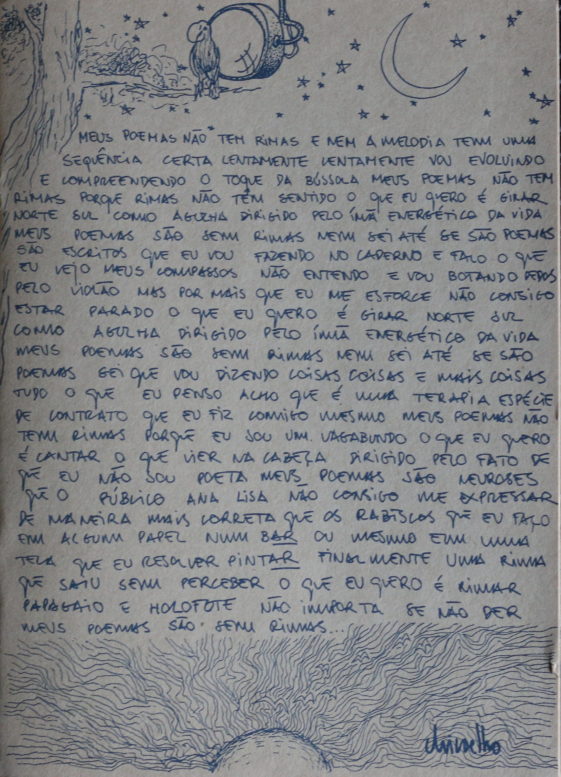 MEUS POEMAS NÃO TEM RIMAS E NEM A MELODIA TEM UMA
SEQUÊNCIA CERTA LENTAMENTE LENTAMENTE VOU EVOLUINDO
E COMPREENDENDO O TOQUE DA BÚSSOLA MEUS POEMAS NÃO TEM
RIMAS PORQUE RIMAS NÃO TÊM SENTIDO O QUE EU QUERO É GIRAR
NORTE SUL COMO AGULHA DIRIGIDO PELO ÍMÃ ENERGÉTICO DA VIDA
MEUS POEMAS SÃO SEM RIMAS NEM SEI ATÉ SE SÃO POEMAS
SÃO ESCRITOS QUE EU VOU FAZENDO NO CADERNO E FALO O QUE
EU VEJO MEUS COMPASSOS NÃO ENTENDO E VOU BOTANDO DEDOS
PELO VIOLÃO MAS POR MAIS QUE EU ME ESFORCE NÃO CONSIGO
ESTAR PARADO O QUE EU QUERO É GIRAR NORTE SUL
COMO AGULHA DIRIGIDO PELO ÍMÃ ENERGÉTICO DA VIDA
MEUS POEMAS SÃO SEM RIMAS NEM SEI ATÉ SE SÃO
POEMAS SEI QUE VOU DIZENDO COISAS COISAS E MAIS COISAS
TUDO O QUE EU PENSO ACHO QUE É UMA TERAPIA ESPÉCIE
DE CONTRATO QUE EU FIZ COMIGO MESMO MEUS POEMAS NÃO
TEM RIMAS PORQUE EU SOU UM VAGABUNDO O QUE EU QUERO
É CANTAR O QUE VIER NA CABEÇA DIRIGIDO PELO FATO DE
QUE EU NÃO SOU POETA MEUS POEMAS SÃO NEUROSES
QUE O PÚBLICO ANA LISA NÃO CONSIGO ME EXPRESSAR
DE MANEIRA MAIS CORRETA QUE OS RABISCOS QUE EU FAÇO
EM ALGUM PAPEL NUM BAR OU MESMO EM UMA
TELA QUE EU RESOLVER PINTAR FINALMENTE UMA RIMA
QUE SAIU SEM PERCEBER O QUE EU QUERO É RIMAR
PAPAGAIO E HOLOFOTE NÃO IMPORTA SE NÃO DER
MEUS POEMAS SÃO SEM RIMAS...